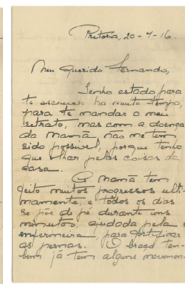 Pretoria, 20-4-16.
Meu Querido Fernando,
Tenho estado para
te escrever ha muito tempo,
para te mandar o meu
retrato, mas com a doença
da Mamã não me tem
sido possivel, porque tenho
que olhar pelas coisas da
casa.
A Mamã tem
feito muitos progressos ulti-
mamente, e todos os dias
se põe de pé durante uns
minutos, ajudada pela
enfermeira, para fortificar
as pernas. O braço tam-
bem já tem alguns movimen-